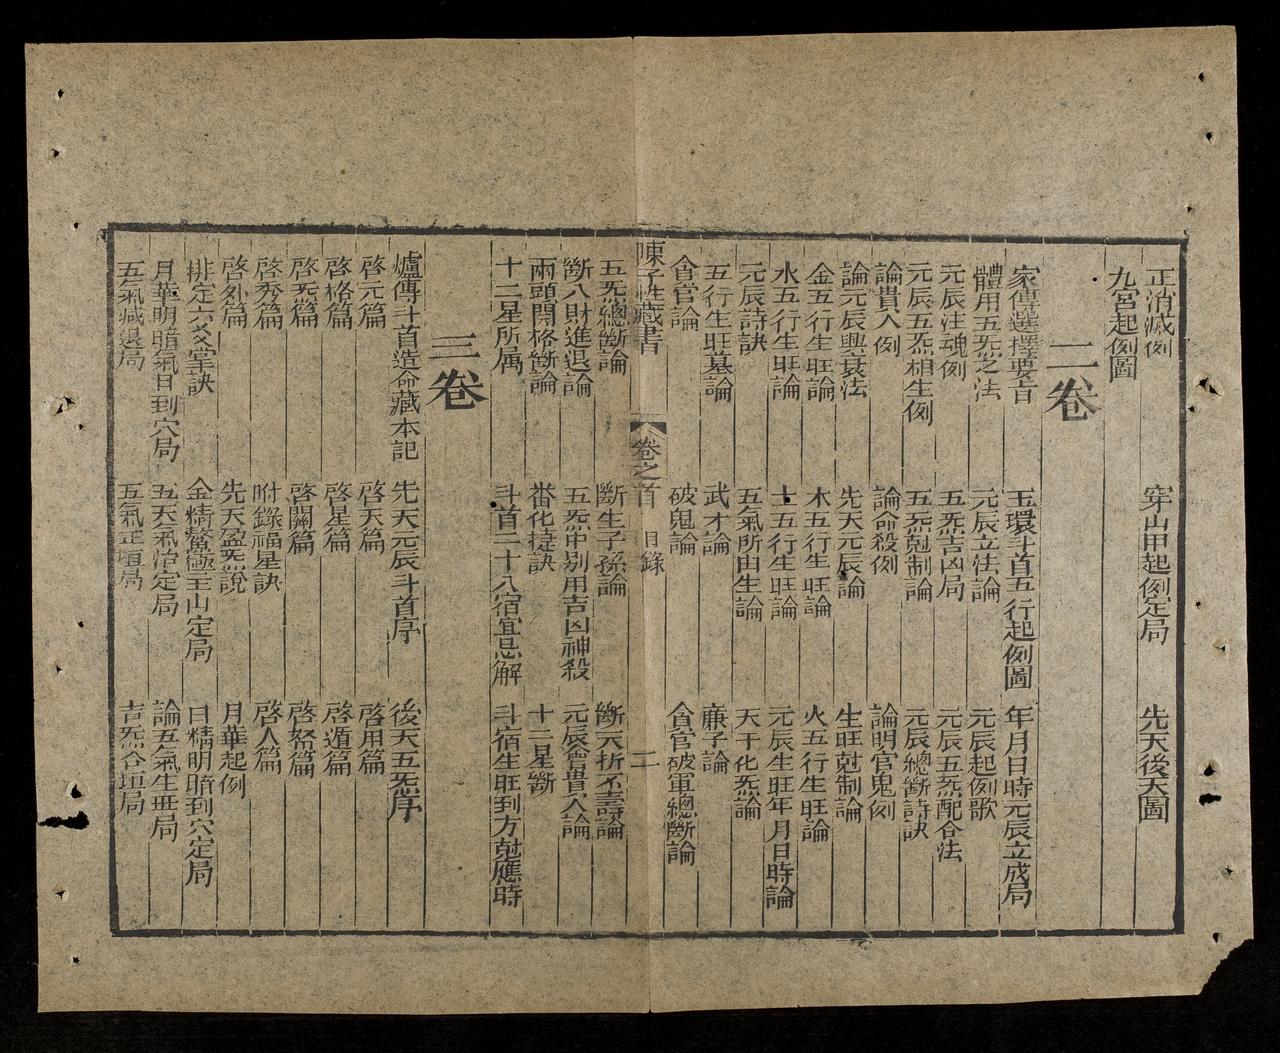 正消滅例 穿山甲起例定局 先天後天圖
九宮起例圖
二卷
家傳選擇要旨 玉環斗首五行起例圖 年月日時元辰立成局
體用五炁之法 元辰立法論 元辰起例歌
元辰注魂例 五炁吉凶局 元辰五炁配合法
元辰五炁相生例 五炁尅制論 元辰總斷詩訣
論貴人例 論命殺例 論明官鬼例
論元辰興衰法 先天元辰論 生旺尅制論
金五行生旺論 木五行生旺論 火五行生旺論
水五行生旺論 土五行生旺論 元辰生旺年月日時論
元辰詩訣 五氣所由生論 天干化炁論
五行生旺墓論 武才論 廉子論
貪官論 破鬼論 貪官破軍總斷論
陳子性藏書 卷之首 目錄 二
五炁總斷論 斷生子孫論 斷夭折不壽論
斷八財進退論 五炁中别用吉凶神殺 元辰會貴人論
兩頭開格斷論 畨化捷訣 十二星斷
十二星所属 斗首二十八宿宜忌解 斗宿生旺到方尅應時
三卷
爐傳斗首造命藏本記 先天元辰斗首序 後天五炁序
啓元篇 啓天篇 啓用篇
啓格篇 啓星篇 啓遁篇
啓炁篇 啓關篇 啓帑篇
啓秀篇 附錄福星訣 啓人篇
啓外篇 先天盈炁說 月華起例
排定六爻掌訣 金精鰲極坐山定局 日精明暗到穴定局
月華明暗氣日到穴局 五天氣治定局 論五氣生旺局
五氣臧退局 五氣正垣局 吉炁合垣局